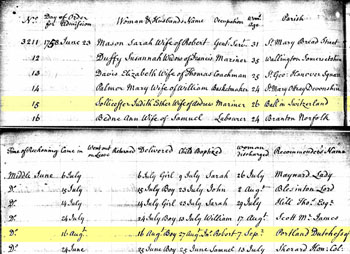 No. Day of Order for Admission Woman & Husbands Name Occupation Wom. Age Parish
3211 1758 June 23 Mason Sarah Wife of Robert Gent. Serv. 31 St. Mary Bread Street
12 Duffy Susannah Widow of Francis Mariner 35 Wallington Somersetshire
13 Davis Elizabeth Wife of Thomas Coachman 25 St. Geo. Hanover Square
14 Palmer Mary Wife of William Basketmaker 24 St. Mary Devonshire
15 Judith Ester Wife of Mariner 26 in Switzerland
16 Bedne Ann Wife of Samuel Labourer 24 Branton Norfolk
Time of Reckoning Came in Went out Returned Delivered Child Baptized Woman discharged Recommenders Name
Middle June 6 July 6 July Girl 9 July Sarah 26 July Maynard Lady
Do. 15 July 15 July Boy 23 July John 2 Augt. Blesinton Lord
Do. 6 July 6 July Girl Sarah 29 July Hill Thos. Esqr.
Do. 24 July 24 July Boy July William 17 Augt. Scott James
Do. 16 Augt. 16 Augt. Boy 27 Augt. Robert 7 Sepr. Portland Dutchess of
Do. 24 June 23 June Boy 25 June Samuel 13 July Col.